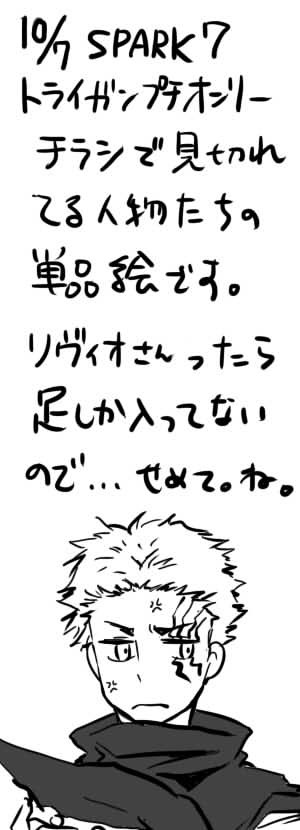 10/7 SPARK7
トライガンプチオンリー
チラシで見切れ
てる人物たちの
単品絵です。
リヴィオさんったら
足しか入ってない
ので…せめて。ね。